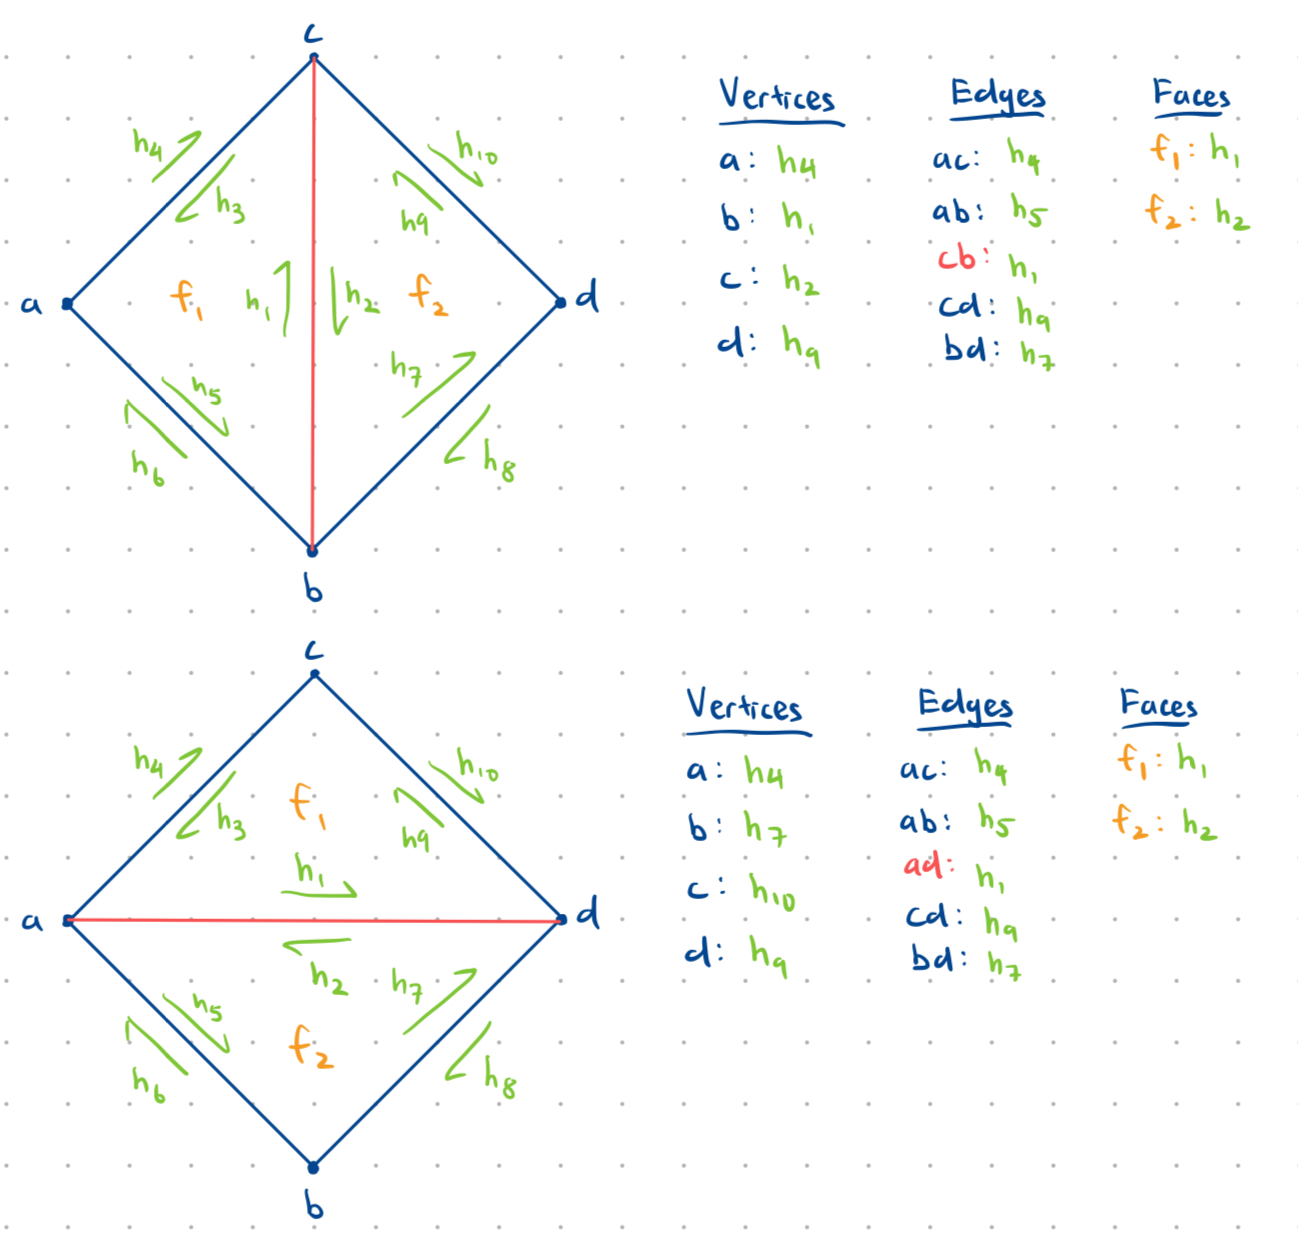 c
h4
h3
h10
h9
a
f1
h1
h2
f2
d
h5
h6
h7
h8
b
Vertices
a: h4
b: h1
c: h2
d: h9
Edges
ac: h4
ab: h5
cb: h1
cd: h9
bd: h7
Faces
f1: h1
f2: h2
c
h4
h3
f1
h10
h9
h1
a
d
h2
h7
h5
f2
h6
h8
b
Vertices
a: h4
b: h7
c: h10
d: h9
Edges
ac: h4
ab: h5
ad: h1
cd: h9
bd: h7
Faces
f1: h1
f2: h2